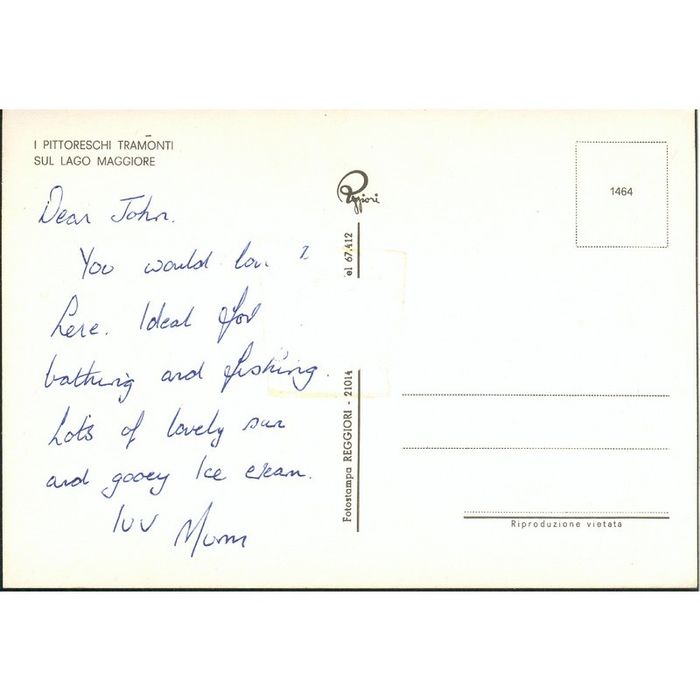 I PITTORESCHI TRAMONTI
SUL LAGO MAGGIORE
Dear John.
You would
here. Ideal for
bathing and fishing.
Lots of lovely sun
and gooey Ice cream.
luv Mum
Reggiori
1464
Fotostampa REGGIORI - 21014
el 67.412
Riproduzione vietata